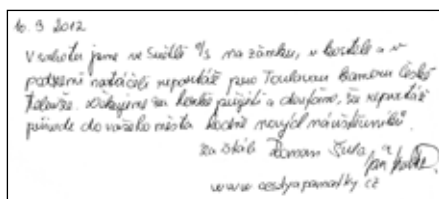 16. 9 2012
V sobotu jsme ve Světlé n/s na zámku, v kostele a v
podzemí natáčeli reportáž pro Toulavou kameru České
televize. Děkujeme za hezké přijetí a doufáme, že reportáž
přivede do vašeho města hodně nových návštěvníků.
Za štáb Roman
www.cestyapamatky.cz